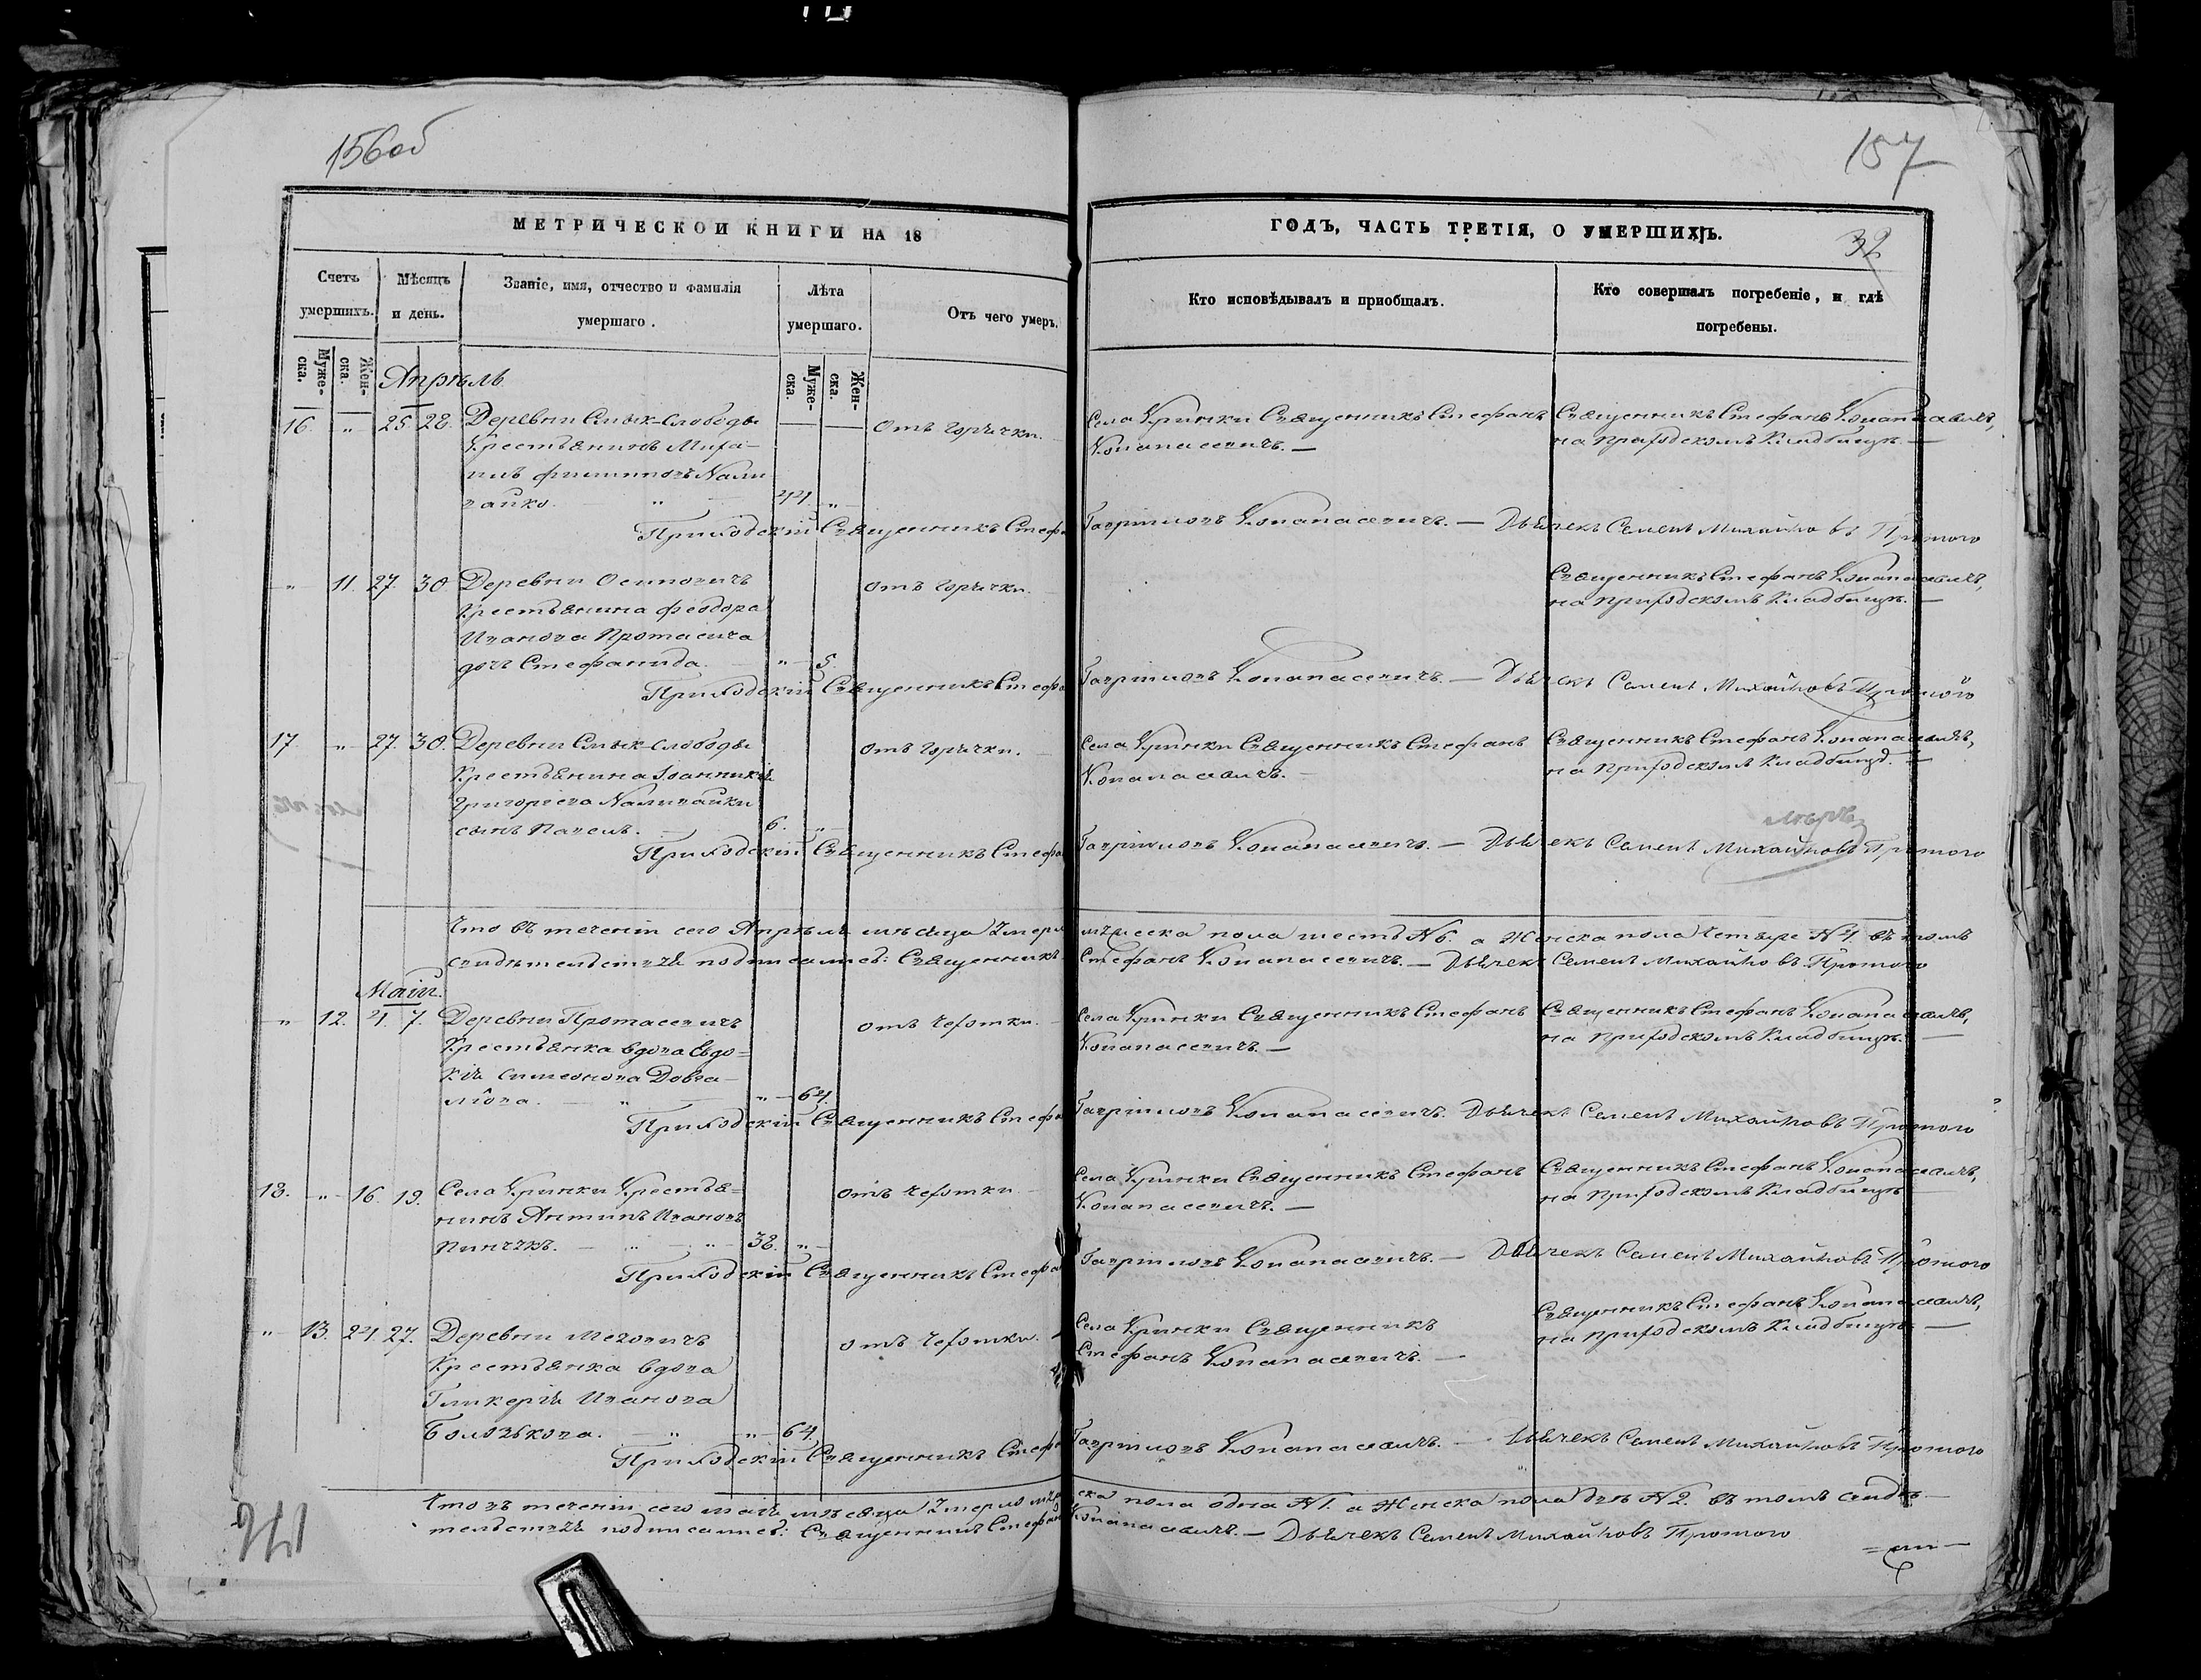 156об
157
МЕТРИЧЕСКОЙ КНИГИ НА 18
ГОДЪ, ЧАСТЬ ТРЕТІЯ, О УМЕРШИХЪ.
32
Счетъ умершихъ.
Мѣсяцъ и день.
Званіе, имя, отчество и фамилія умершаго.
Лѣта умершаго.
Отъ чего умеръ.
Кто исповѣдывалъ и приобщалъ.
Кто совершалъ погребеніе, и гдѣ погребены.
Муже-ска.
Жен-ска.
Муже-ска.
Жен-ска.
Апрѣль
16. " 25 28. Деревни Смык-Слободы
Крестьянинъ Миха-
илъ Филиповъ Нали
вайко. " 44. "
отъ горячки.
Села Кринки Священникъ Стефанъ
Конапасевичъ. —
Священникъ Стефанъ Конапасевичъ,
на приходскомъ Кладбищѣ. —
Приходскій Священникъ Стефа Гавриловъ Конапасевичъ. — Дьячекъ Семенъ Михайловъ
" 11. 27. 30. Деревни Осиповичъ
Крестьянина Феодора
Иванова Протасевича
дочь Стефанида. " 5.
отъ горячки.
Священникъ Стефанъ Конапасевичъ,
на приходскомъ Кладбищѣ. —
Приходскій Священникъ Стефа Гавриловъ Конапасевичъ. — Дьячекъ Семенъ Михайловъ
17. " 27. 30. Деревни Смык-Слободы
Крестьянина Іоанникія
Григоріева Наливайки
сынъ Павелъ. 6. "
отъ горячки.
Села Кринки Священникъ Стефанъ
Конапасевичъ. —
Священникъ Стефанъ Конапасевичъ,
на приходскомъ Кладбищѣ. —
Приходскій Священникъ Стефа Гавриловъ Конапасевичъ. — Дьячекъ Семенъ Михайловъ
Что въ теченіи сего Апрѣля мѣсяца Умерло мужеска пола шесть №6. а Женска пола Четыре №4. въ томъ
свидѣтельствуя подписались: Священникъ Стефанъ Конапасевичъ. — Дьячекъ Семенъ Михайловъ
Маій.
" 12. 4. 7. Деревни Протасевичъ
Крестьянка вдова Евдо=
кія Симеонова
" 64.
отъ Чехотки.
Села Кринки Священникъ Стефанъ
Конапасевичъ. —
Священникъ Стефанъ Конапасевичъ,
на приходскомъ Кладбищѣ. —
Приходскій Священникъ Стефа Гавриловъ Конапасевичъ. Дьячекъ Семенъ Михайловъ
18. " 16. 19. Села Кринки Крестья=
нинъ Антипъ Ивановъ
38. "
отъ чехотки
Села Кринки Священникъ Стефанъ
Конапасевичъ. —
Священникъ Стефанъ Конапасевичъ,
на приходскомъ Кладбищѣ —
Приходскій Священникъ Стефа Гавриловъ Конапасевичъ. — Дьячекъ Семенъ Михайловъ
" 13. 24. 27. Деревни
Крестьянка вдова
Гликерія Иванова
" 64.
отъ Чехотки.
Села Кринки Священникъ
Стефанъ Конапасевичъ. —
Священникъ Стефанъ Конапасевичъ,
на приходскомъ Кладбищѣ. —
Приходскій Священникъ Стефа Гавриловъ Конапасевичъ. — Дьячекъ Семенъ Михайловъ
Что въ теченіи сего маія мѣсяца Умерло мужеска пола одна №1. а Женска пола двѣ №2. въ томъ свидѣ-
тельствуя подписались: Священникъ Стефанъ Конапасевичъ. — Дьячекъ Семенъ Михайловъ